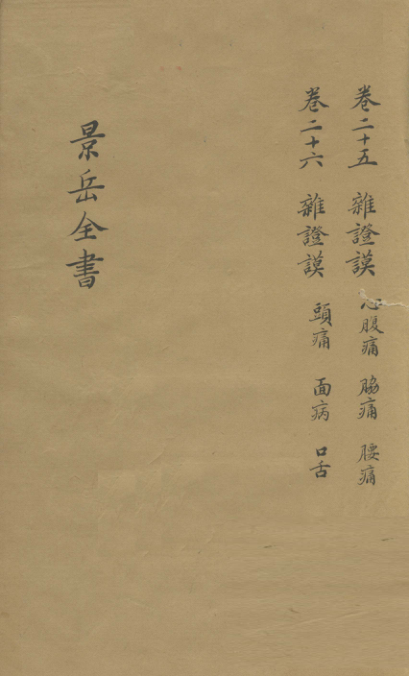 卷二十五 雜證謨 心腹痛 脇痛 腰痛
卷二十六 雜證謨 頭痛 面病 口舌
景岳全書